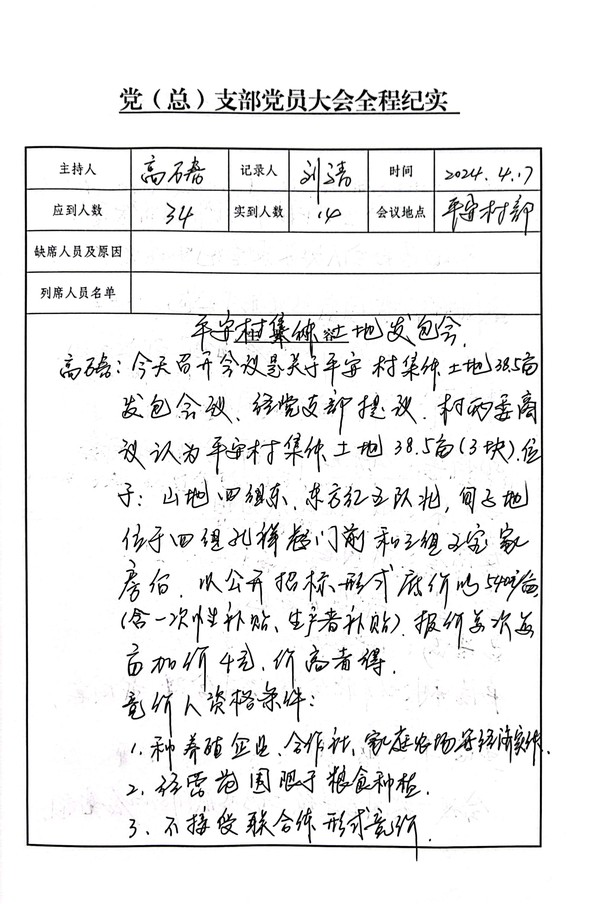 党（总）支部党员大会全程纪实
主持人 高磊 记录人 刘靖 时间 2024.4.17
应到人数 34 实到人数 14 会议地点 平安村部
缺席人员及原因
列席人员名单
平安村集体土地发包会
：今天召开会议是关于平安村集体土地38.5亩
发包会议、经党支部提议、村两委商
议认为平安村集体土地38.5亩(3块).位
于：山地四组东、东方红五队北,甸子地
位于四组孔祥 门前和三组王 家
房后.以公开招标形式底价为540元/亩
(含一次性补贴、生产者补贴).报价每次每
亩加价4元,价高者得.
竞价人资格条件：
1.种养殖企业、合作社、家庭农场等经济实体.
2.经营范围限于粮食种植.
3、不接受联合体形式竞价.